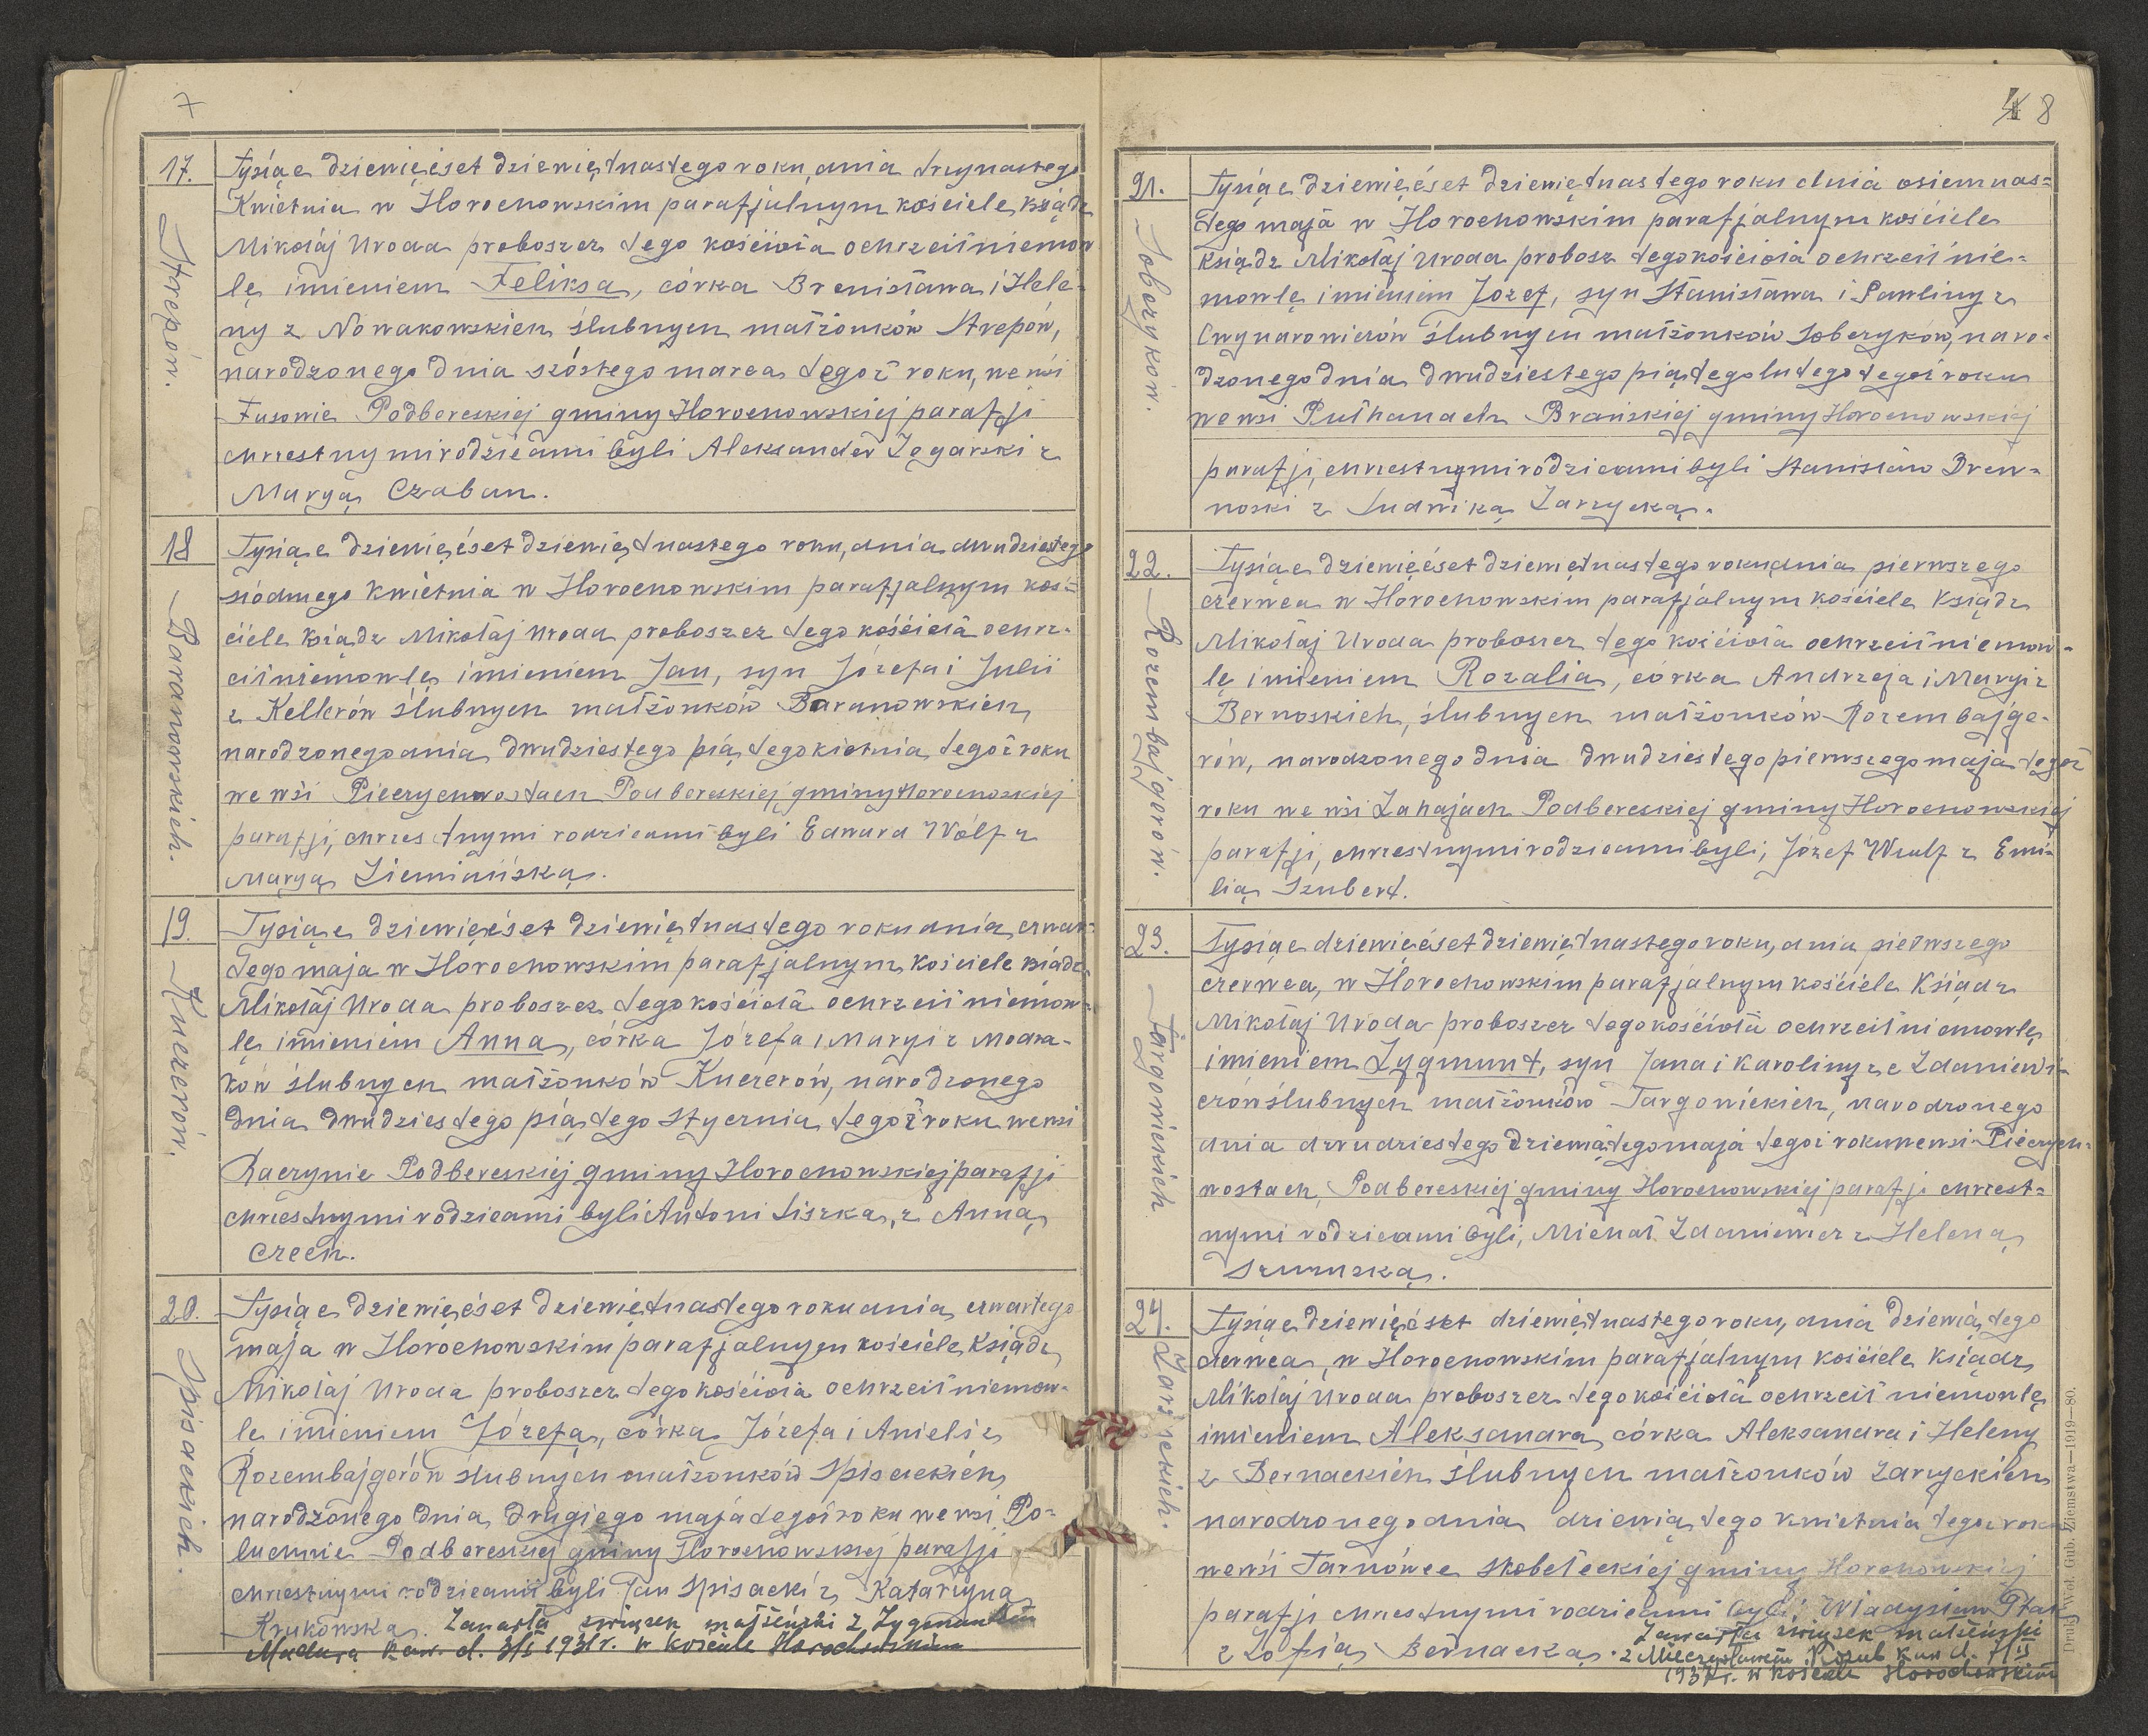 7
17.
Strepów.
Tysiąc dziewięćset dziewiętnastego roku, dnia trzynastego
Kwietnia w Horochowskim parafjalnym kościele ksiądz
Mikołaj Uroda proboszcz tego kościoła ochrzcił niemow
lę imieniem Feliksa, córka Bronisława i Hele-
ny z Nowakowskich ślubnych małżonków Strepów,
narodzonego dnia szóstego marca tegoż roku, we wsi
Fusowie Podbereskiej gminy Horochowskiej parafji
chrzestnymi rodzicami byli Aleksander Zegarski z
Maryą Czaban.
18
Baranowskich.
Tysiąc dziewięćset dziewiętnastego roku, dnia dwudziestego
siódmego Kwietnia w Horochowskim parafjalnym koś-
ciele ksiądz Mikołaj Uroda proboszcz tego kościoła ochrz-
cił niemowlę imieniem Jan, syn Józefa i Julii
z Kellerów ślubnych małżonków Baranowskich,
narodzonego dnia dwudziestego piątego kietnia tegoż roku
we wsi Pieczychwostach Podbereskiej gminy Horochoskiej
parafji, chrzestnymi rodzicami byli Edward Wólf z
Maryą Ziemiańską.
19.
Kuczerów.
Tysiąc dziewięćset dziewiętnastego roku dnia czwar-
tego maja w Horochowskim parafjalnym kościele ksiądz
Mikołaj Uroda proboszcz tego kościoła ochrzcił niemow-
lę imieniem Anna, córka Józefa i Maryi z Modra-
ków ślubnych małżonków Kuczerów, narodzonego
dnia dwudziestego piątego stycznia tegoż roku we wsi
Raczynie Podbereskiej gminy Horochowskiej parafji
chrzestnymi rodzicami byli Antoni Liszka, z Anną
Czech.
20.
Spisackich.
Tysiąc dziewięćset dziewiętnastego roku dnia czwartego
maja w Horochowskim parafjalnym kościele ksiądz
Mikołaj Uroda proboszcz tego kościoła ochrzcił niemow-
lę imieniem Józefa, córka Józefa i Anieli z
Rozembajgerów ślubnych małżonków Spisackich,
narodzonego dnia drugiego maja tegoż roku we wsi Po-
luchnie Podbereskiej gminy Horochowskiej parafji
chrzestnymi rodzicami byli Jan Spisacki z Katarzyną
Krukowską. Zawarła związek małżeński z Zygmuntem
Madurą kaw. d. 3/I 1931 r. w kościele Horochowskim
8
21.
Sobczyków.
Tysiąc dziewięćset dziewiętnastego roku dnia osiemnas-
tego maja w Horochowskim parafjalnym kościele
ksiądz Mikołaj Uroda probosz tego kościoła ochrzcił nie-
mowlę imieniem Józef, syn Stanisława i Pawliny z
Cwynarowiczów ślubnych małżonków Sobczyków, naro-
dzonego dnia dwudziestego piątego lutego tegoż roku
we wsi Pułhanach Brańskiej gminy Horochowskiej
parafji, chrzestnymi rodzicami byli Stanisław Drew-
noski z Ludwiką Zarzycką.
22.
Rozembajgerów.
Tysiąc dziewięćset dziewiętnastego roku dnia pierwszego
czerwca w Horochowskim parafjalnym kościele Ksiądz
Mikołaj Uroda proboszcz tego kościoła ochrzcił niemow-
lę imieniem Rozalia, córka Andrzeja i Maryi z
Bernoskich, ślubnych małżonków Rozembajge-
rów, narodzonego dnia dwudziestego pierwszego maja tegoż
roku we wsi Zahajach Podbereskiej gminy Horochowskiej
parafji, chrzestnymi rodzicami byli, Józef Wulf z Emi-
lią Szubert.
23.
Targowickich
Tysiąc dziewięćset dziewiętnastego roku, dnia pierwszego
czerwca, w Horochowskim parafjalnym kościele Ksiądz
Mikołaj Uroda proboszcz tego kościoła ochrzcił niemowlę
imieniem Zygmunt, syn Jana i Karoliny ze Zdaniewi-
czów ślubnych małżonków Targowickich, narodzonego
dnia dwudziestego dziewiątego maja tegoż roku we wsi Pieczych-
wostach, Podbereskiej gminy Horochowskiej parafji chrzest-
nymi rodzicami byli, Michał Zdaniewicz z Heleną
Szumską.
24.
Zarzyckich.
Tysiąc dziewięćset dziewiętnastego roku, dnia dziewiątego
czerwca, w Horochowskim parafjalnym kościele ksiądz,
Mikołaj Uroda proboszcz tego kościoła ochrzcił niemowlę
imieniem Aleksandra, córka Aleksandra i Heleny
z Bernackich ślubnych małżonków Zarzyckich
narodzonego dnia dziewiątego kwietnia tegoż roku
we wsi Tarnówce Skobełeckiej gminy Horochowskiej
parafji chrzestnymi rodzicami byli, Władysław Ptak
z Zofią Bernacką. Zawarła związek małżeński
z Mieczysławem Kozub kaw d. 7/II
1937 r. w kościele Horochowskim
Druk. Woł. Gub. Ziemstwa—1919—80.